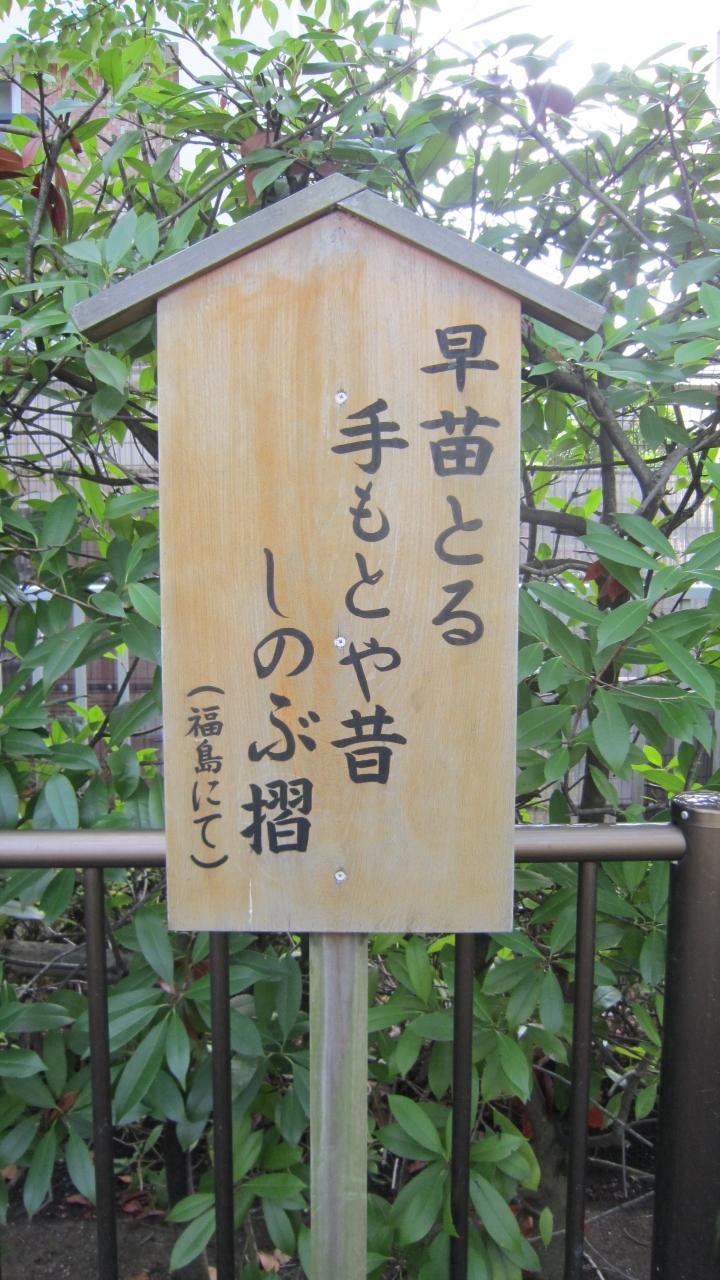 早苗とる
手もとや昔
しのぶ摺
（福島にて）